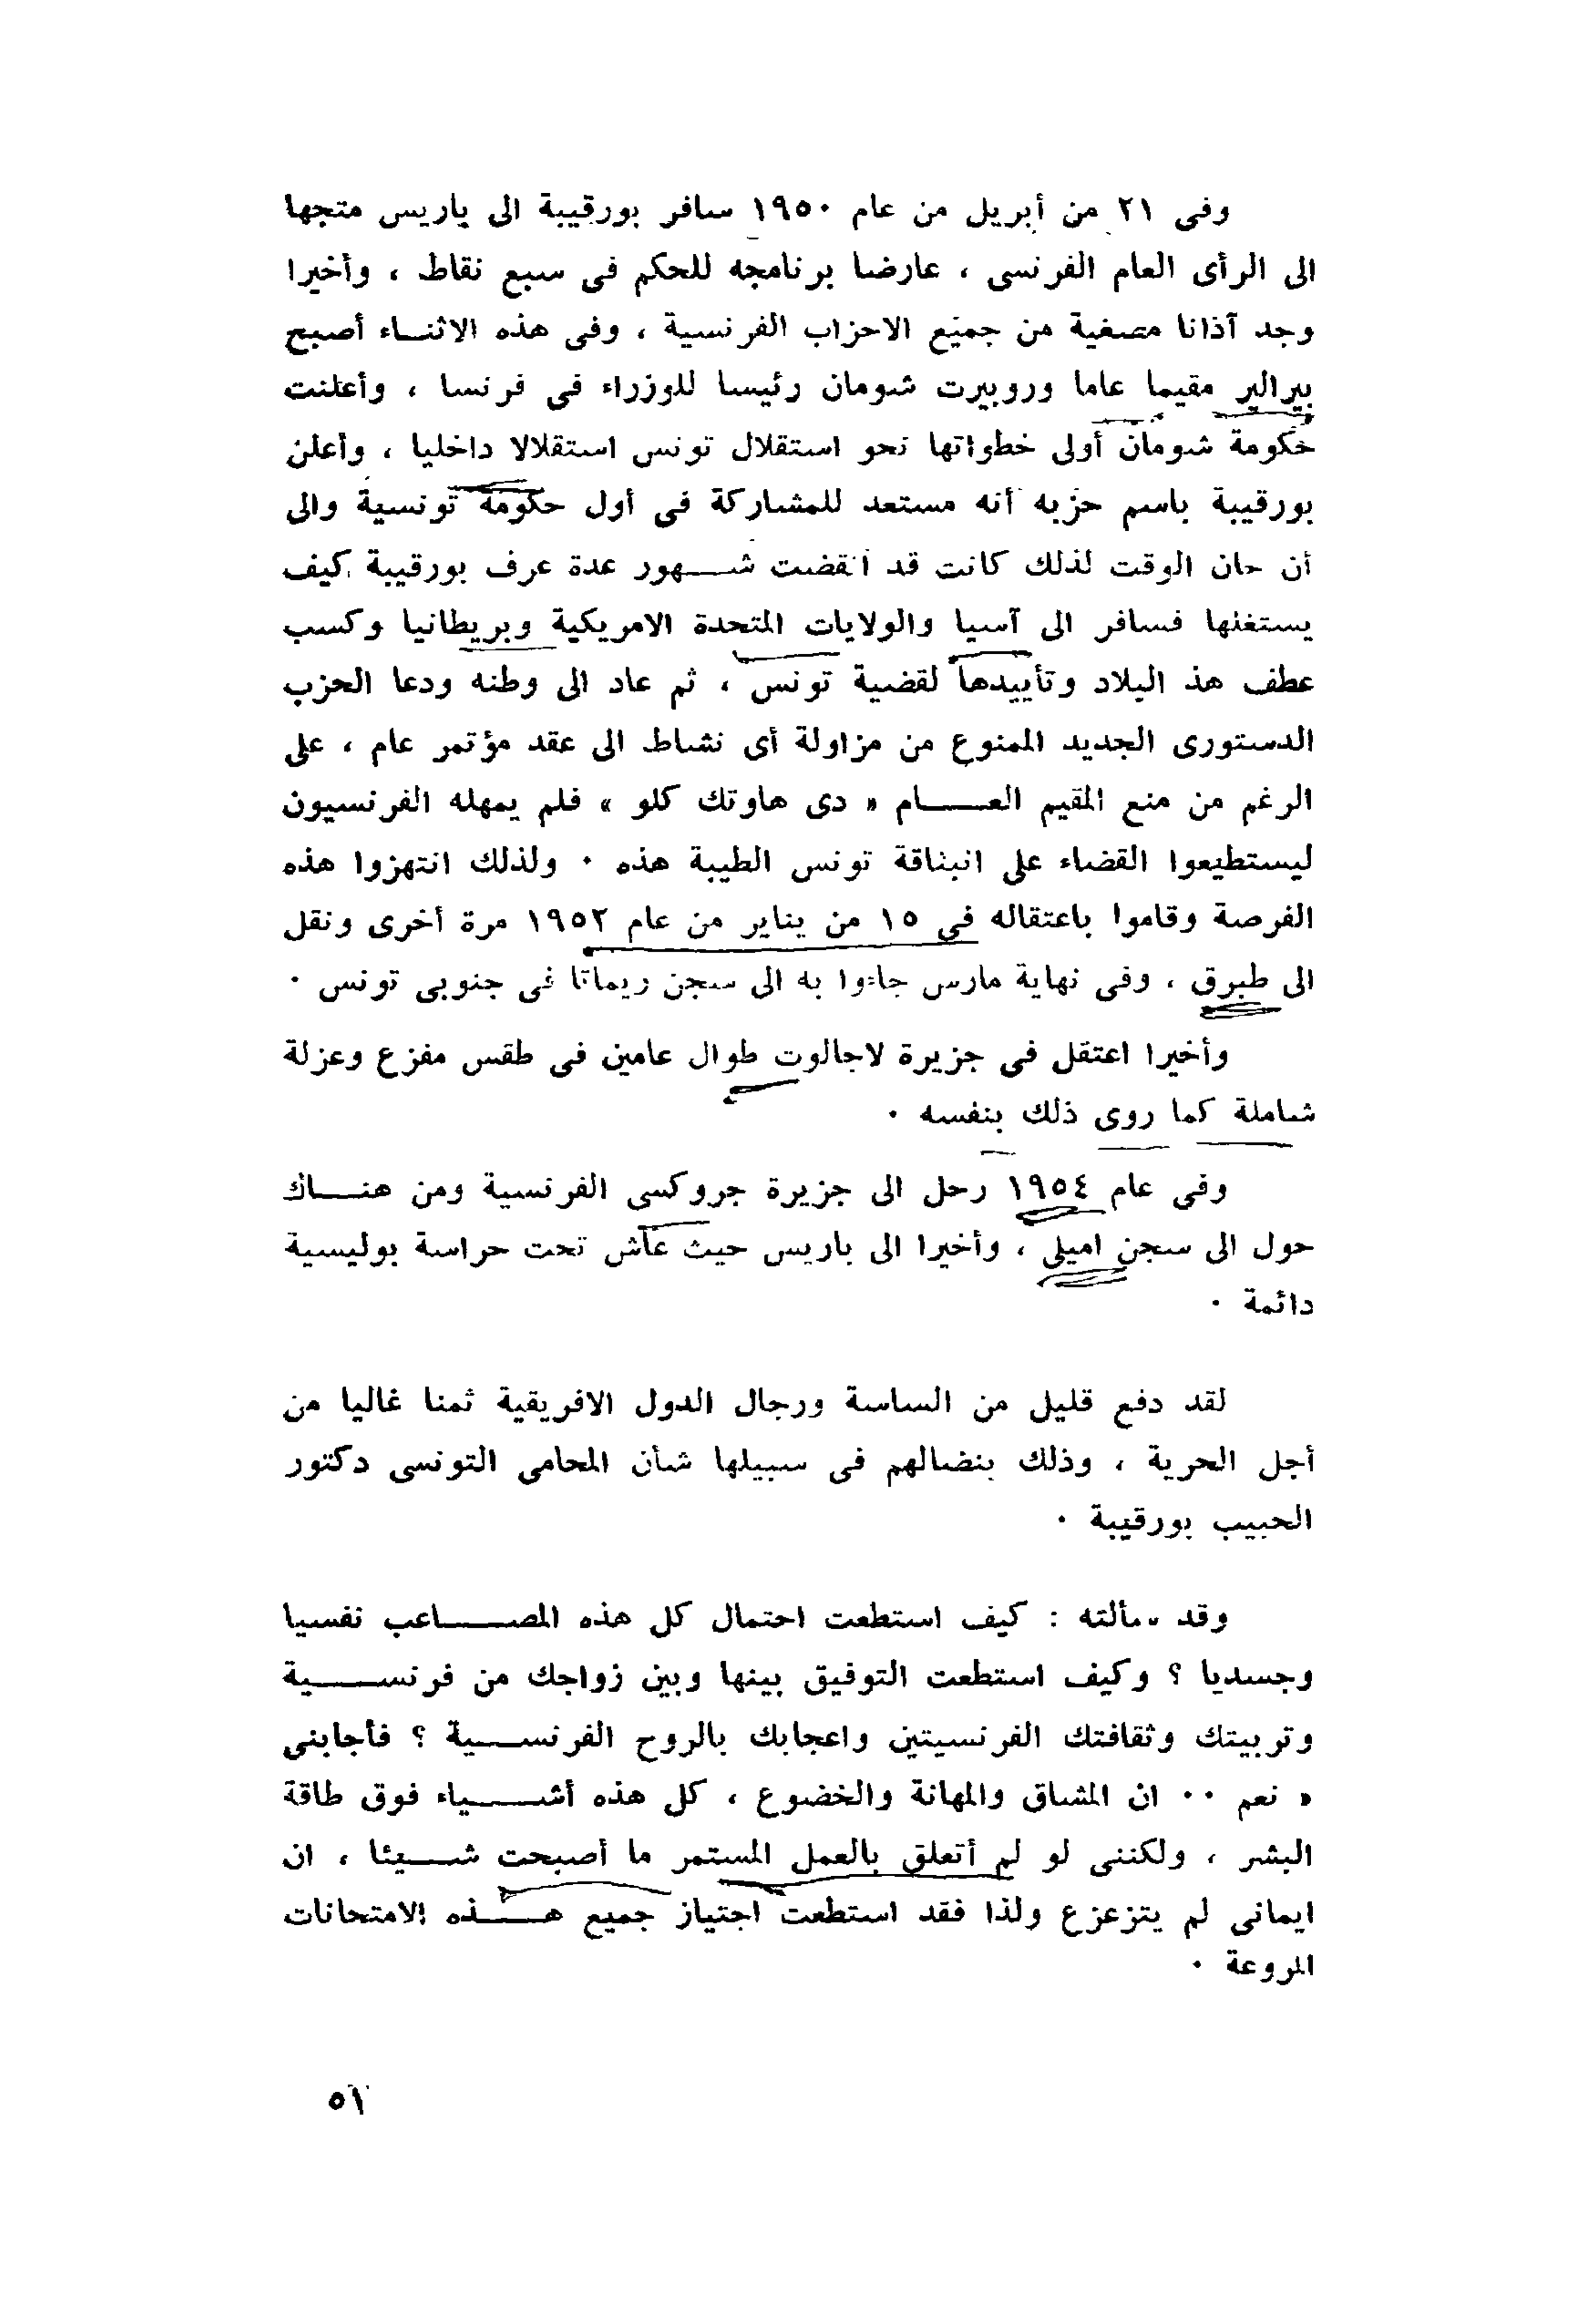 وفى ٢١ من أبريل من عام ١٩٥٠ سافر بورقيبة الى باريس متجها
الى الرأى العام الفرنسى ، عارضا برنامجه للحكم فى سبع نقاط ، وأخيرا
وجد آذانا مصغية من جميع الاحزاب الفرنسية ، وفى هذه الاثناء أصبح
بيرالير مقيما عاما وروبيرت شومان رئيسا للوزراء فى فرنسا ، وأعلنت
حكومة شومان أولى خطواتها نحو استقلال تونس استقلالا داخليا ، وأعلن
بورقيبة باسم حزبه أنه مستعد للمشاركة فى أول حكومة تونسية والى
أن حان الوقت لذلك كانت قد انقضت شهور عدة عرف بورقيبة كيف
يستغلها فسافر الى آسيا والولايات المتحدة الامريكية وبريطانيا وكسب
عطف هذ البلاد وتأييدها لقضية تونس ، ثم عاد الى وطنه ودعا الحزب
الدستورى الجديد الممنوع من مزاولة أى نشاط الى عقد مؤتمر عام ، على
الرغم من منع المقيم العام « دى هاوتك كلو » فلم يمهله الفرنسيون
ليستطيعوا القضاء على انبثاقة تونس الطيبة هذه . ولذلك انتهزوا هذه
الفرصة وقاموا باعتقاله فى ١٥ من يناير من عام ١٩٥٢ مرة أخرى ونقل
الى طبرق ، وفى نهاية مارس جاءوا به الى سجن ريماتا فى جنوبى تونس .
وأخيرا اعتقل فى جزيرة لاجالوت طوال عامين فى طقس مفزع وعزلة
شاملة كما روى ذلك بنفسه .
وفى عام ١٩٥٤ رحل الى جزيرة جروكسى الفرنسية ومن هناك
حول الى سجن اميلى ، وأخيرا الى باريس حيث عاش تحت حراسة بوليسية
دائمة .
لقد دفع قليل من الساسة ورجال الدول الافريقية ثمنا غاليا من
أجل الحرية ، وذلك بنضالهم فى سبيلها شأن المحامى التونسى دكتور
الحبيب بورقيبة .
وقد سألته : كيف استطعت احتمال كل هذه المصاعب نفسيا
وجسديا ؟ وكيف استطعت التوفيق بينها وبين زواجك من فرنسية
وتربيتك وثقافتك الفرنسيتين واعجابك بالروح الفرنسية ؟ فأجابنى
« نعم .. ان المشاق والمهانة والخضوع ، كل هذه أشياء فوق طاقة
البشر ، ولكننى لو لم أتعلق بالعمل المستمر ما أصبحت شيئا ، ان
ايمانى لم يتزعزع ولذا فقد استطعت اجتياز جميع هذه الامتحانات
المروعة .
٥١